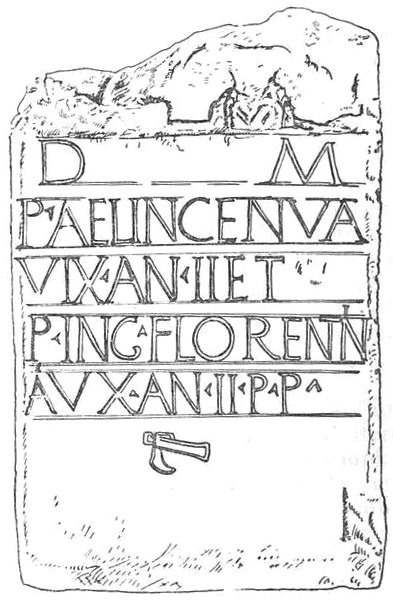 D M
P·AELINCENVA
VIX·AN·IIET
P·ING·FLORENTIN
AVX·AN·II·P·P·